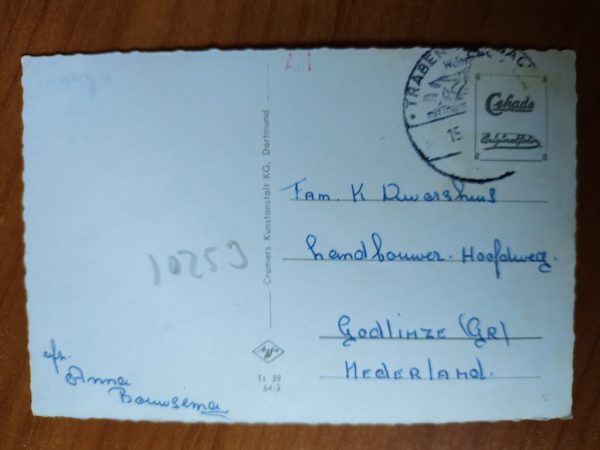 TRABEN
15
Cekade
Originalfoto
Fam. K Dwarshuis
Landbouwer. Hoofdweg.
Godlinze (GR)
Nederland.
Cramers Kunstanstalt KG, Dortmund
10259
Tr 59
64:3
afz.
Anna
Bouwsema